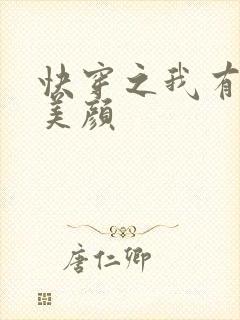 快穿之我有
美颜
唐仁卿